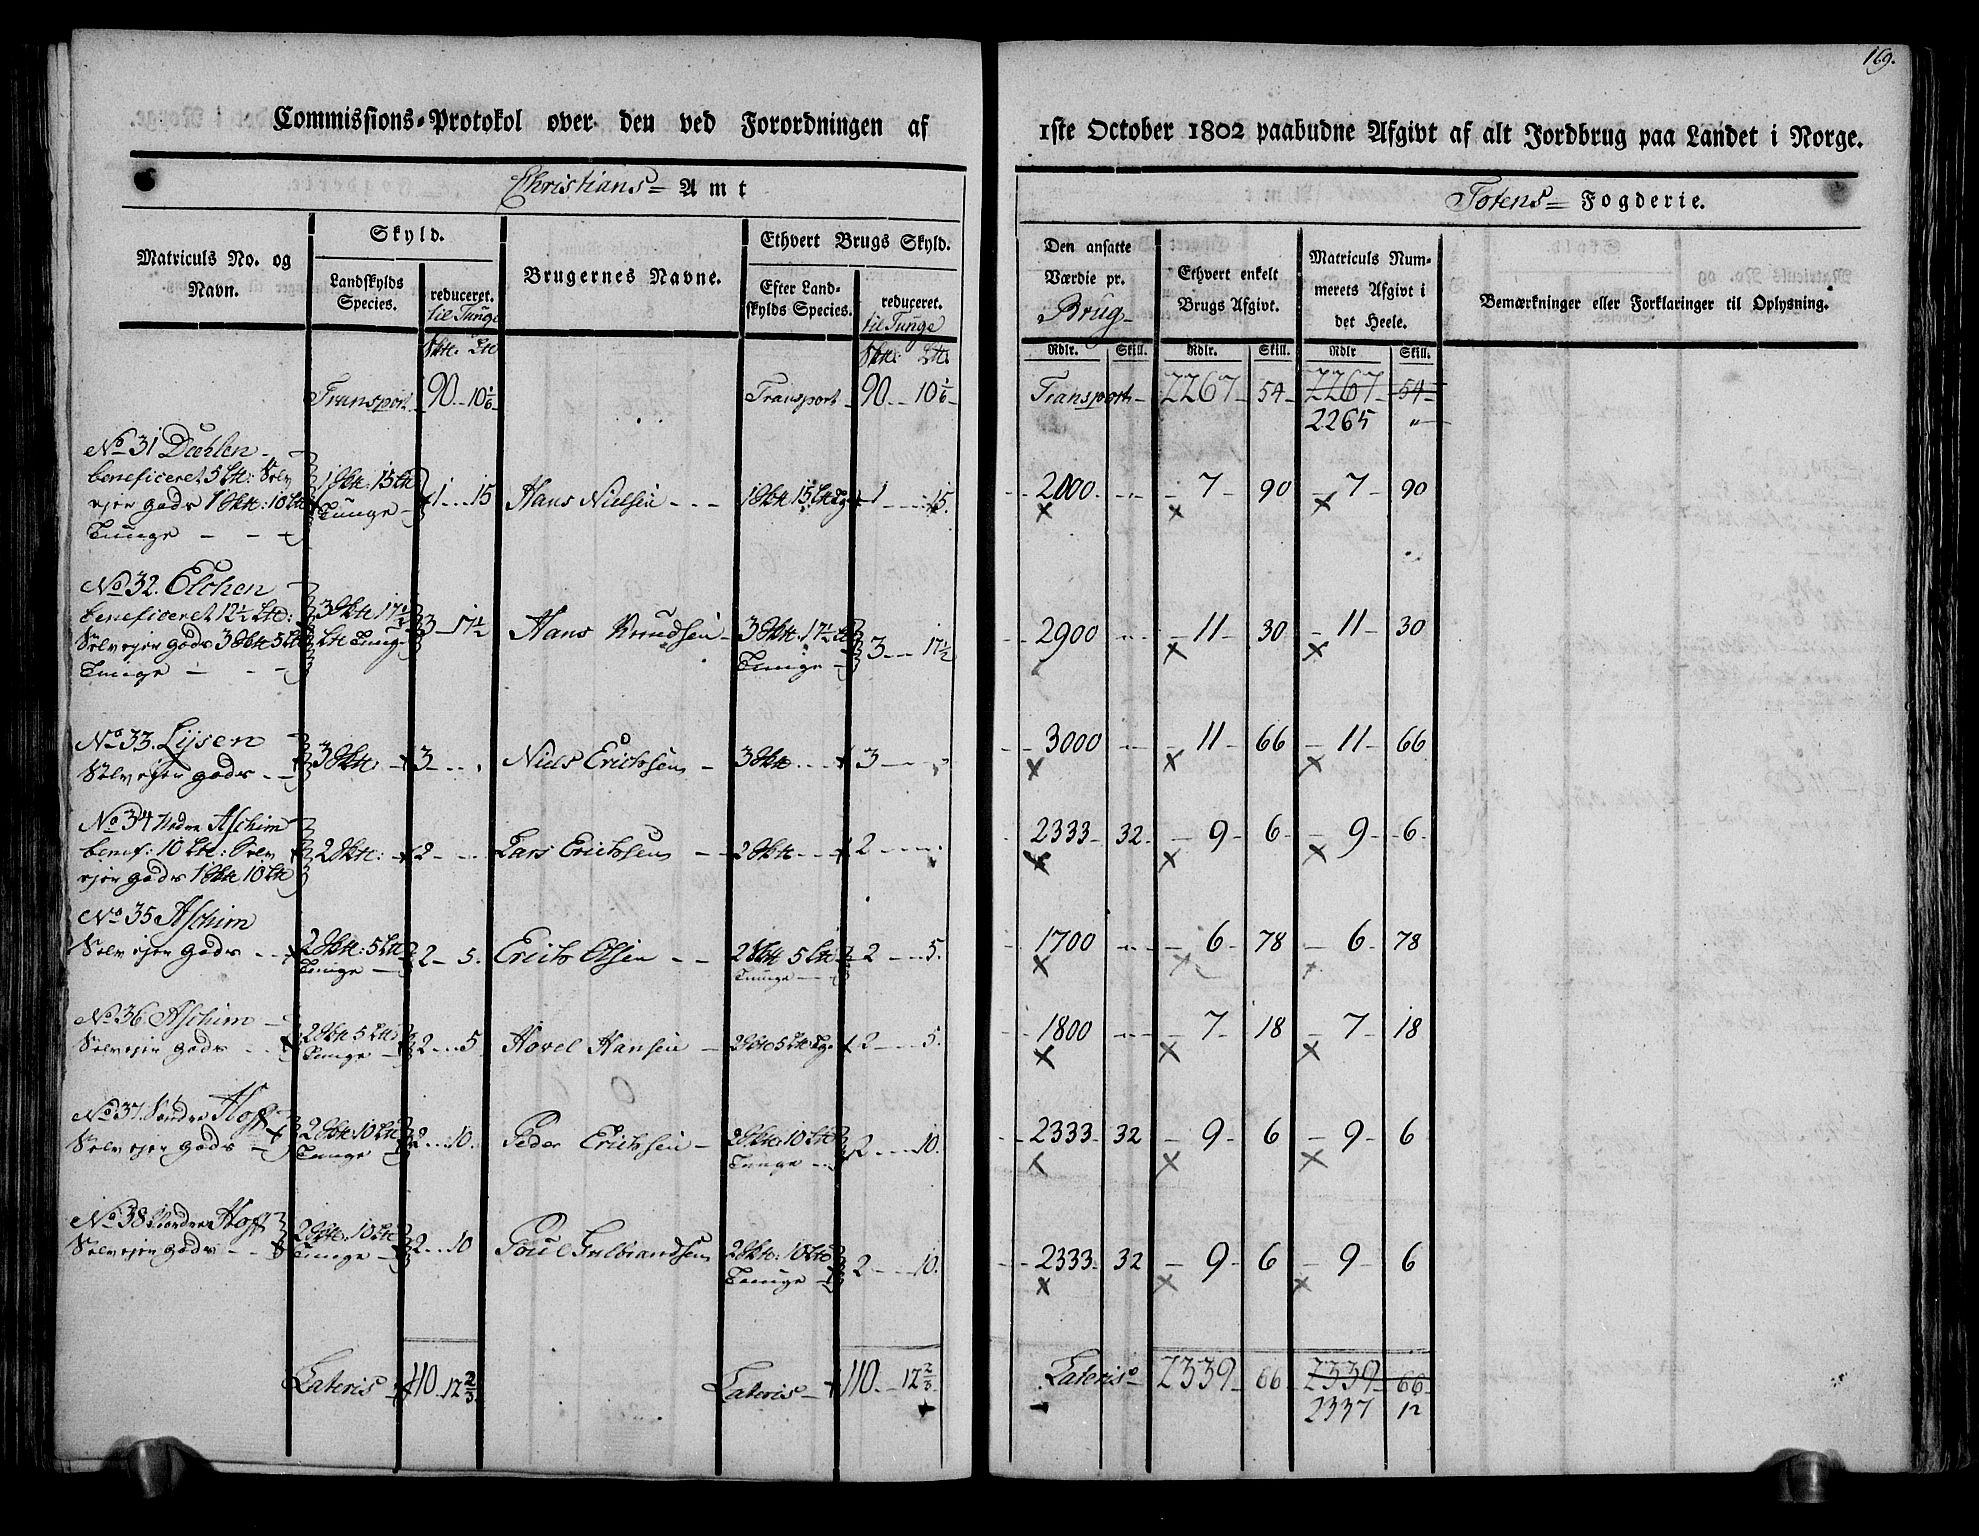 169.
Commissions-Protokol over den ved Forordningen af 1ste October 1802 paabudne Afgivt af alt Jordbrug paa Landet i Norge.
Christians= Amt
Totens= Fogderie.
Matriculs No. og Navn.
Skyld.
Landskylds Species.
reduceret. til Tunge
Brugernes Navne.
Ethvert Brugs Skyld.
Efter Landskylds Species.
reduceret. til Tunge
Den ansatte Værdie pr. Brug
Ethvert enkelt Brugs Afgivt.
Matriculs Nummerets Afgivt i det Heele.
Bemærkninger eller Forklaringer til Oplysning.
Rdlr. Skill. Rdlr. Skill. Rdlr Skill.
Transport 90 10 1/6 Transport 90 10 1/6 Transport 2267 54 2267 54
2265 "
No 31 Dæhlen
beneficeret 5 Lt: Selv 1 Skt: 15 Lt 1 15 Hans Nielsen 1 Skt 15 Lt Tge 1 15. 2000. 7 90 7 90
ejer gods 1 Skt: 10 Lt Tunge
Tunge
No 32.
beneficeret 12½ Lt: 3 Skt 17½ 3 17½ Hans Knudsen 3 Skt. 17½ Lt 3 17½ 2900 11 30 11 30
Selvejer gods 3 Skt 5 Lt Lt Tunge Tunge
Tunge
No 33. Lysen
Selvejer gods 3 Skt 3 Niels Erichsen 3 Skt 3 3000 11 66 11 66
No 34 Nedre Aschim
benef: 10 Lt: Selv 2 Skt: 2 Lars Erichsen 2 Skt 2 2333 32 9 6 9 6
ejer gods 1 Skt 10 Lt
No 35 Aschim
Selvejer gods 2 Skt: 5 Lt 2 5. Erich Olsen 2 Skt 5 Lt 2 5. 1700 6 78 6 78
Tunge Tunge
No 36 Aschim
Selvejer gods 2 Skt 5 Lt 2 5 Hovel Hansen 2 Skt 5 Lt Tge 2 5. 1800 7 18 7 18
Tunge
No 37. Søndre Hoff
Selvejer gods 2 Skt 10 Lt 2 10. Peder Erichsen 2 Skt 10 Lt 2 10. 2333 32 9 6 9 6
Tunge Tunge
No 38 Nordre Hoff
Selvejer gods 2 Skt. 10 Lt 2 10 Poul Gulbrandsen 2 Skt: 10 Lt 2 10. 2333 32 9 6 9 6
Tunge Tunge
Lateris 110 12 2/3 Lateris 110 12 2/3 Lateris 2339 66 2339 66
2337 12